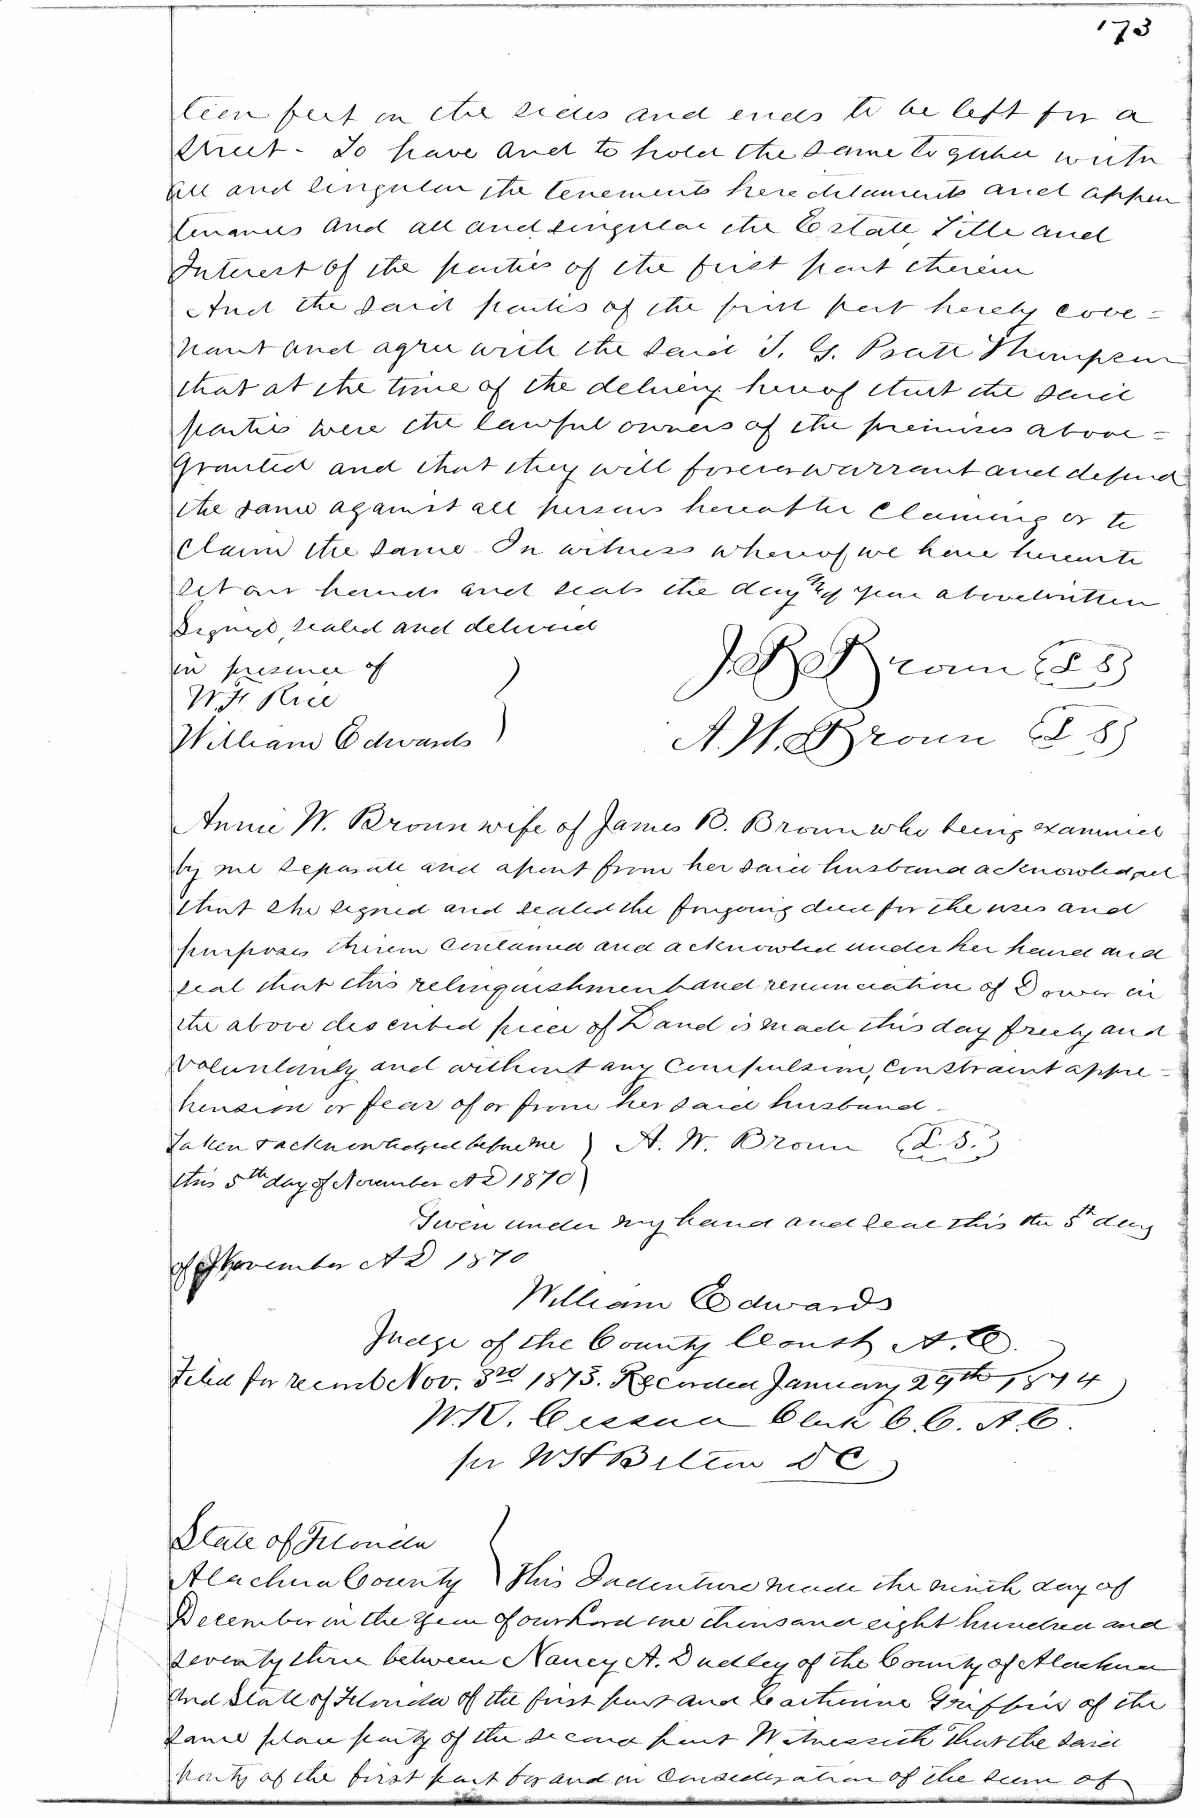 173
teen feet on the sides and ends to be left for a
Street - To have and to hold the same together with
all and singular the tenements hereditaments and appur
tenances and all and singular the Estate, Title and
Interest of the parties of the first part therein
And the said parties of the first part hereby cove=
nant and agree with the said T. G. Pratt Thompson
that at the time of the delivery hereof that the said
parties were the lawful owners of the premises above=
Granted and that they will forever warrant and defend
the same against all persons hereafter Claiming or to
Claim the same. In witness whereof we have hereunto
set our hands and seals the day & year above written
Signed, sealed and delivered
in presence of
W. H. Rice
William Edwards
J. B. Brown (L S)
A. W. Brown (L S)
Annie W. Brown wife of James B. Brown who being examined
by me separate and apart from her said husband acknowledged
that she signed and sealed the foregoing deed for the uses and
purposes therein contained and acknowled under her hand and
seal that this relinquishment and renunciation of Dower in
the above described piece of Land is made this day freely and
voluntarily and without any compulsion, constraint appre=
hension or fear of or from her said husband -
Taken & acknowledged before me ) A. W. Brown (L. S.)
this 5th day of November A D 1870 )
Given under my hand and seal this the 5th day
of November A D 1870
William Edwards
Judge of the County Court A. C.
Filed for record Nov. 3rd 1873. Recorded January 29th, 1874
W. K. Cessna Clerk C. C. A. C.
per W H Belton D C
State of Florida
Alachua County } This Indenture made the ninth day of
December in the year of our Lord one thousand eight hundred and
seventy three between Nancy A. Dudley of the County of Alachua
and State of Florida of the first part and Catherine Griffin of the
same place party of the second part Witnesseth That the said
party of the first part for and in consideration of the sum of